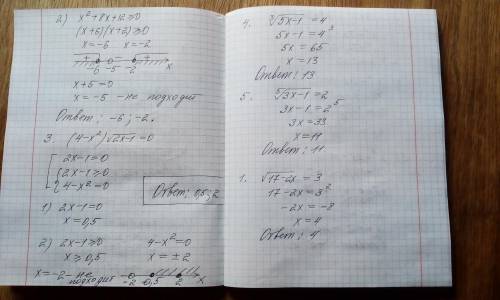 2) x²+8x+12≥0
(x+6)(x+2)≥0
x=-6 x=-2
+ - +
-6 -5 -2 x
x+5=0
x=-5 - не подходит
Ответ: -6; -2.
3. (4-x²)√2x-1=0
2x-1=0
2x-1≥0
4-x²=0
Ответ: 0,5; 2
1) 2x-1=0
x=0,5
2) 2x-1≥0 4-x²=0
x≥0,5 x=±2
x=-2 - не подходит
-2 0,5 2 x
4. ³√5x-1=4
5x-1=4³
5x=65
x=13
Ответ: 13
5. ⁵√3x-1=2
3x-1=2⁵
3x=33
x=11
Ответ: 11
1. √17-2x=3
17-2x=3²
-2x=-8
x=4
Ответ: 4